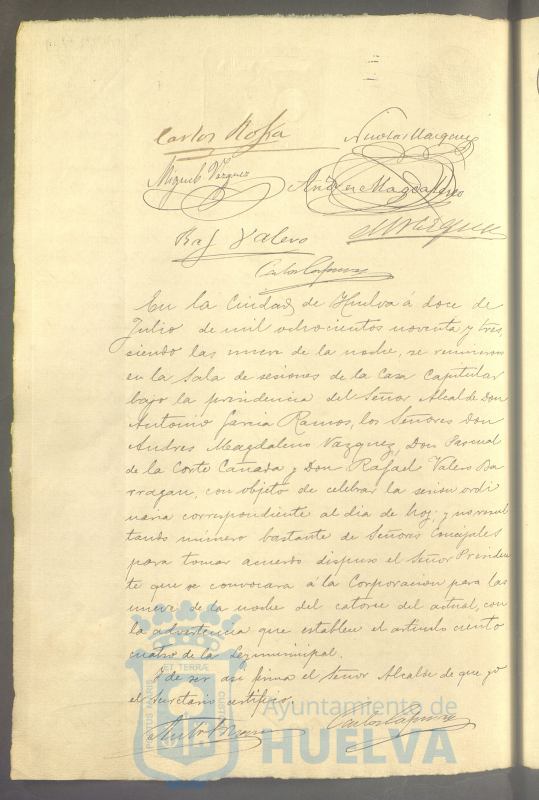 Carlos Rofa Nicolas Marquez
Miguel Vazquez Andres Magdaleno
Raf Valero
En la Ciudad de Huelva á doce de
Julio de mil ochocientos noventa y tres,
siendo las nueve de la noche, se reunieron
en la Sala de sesiones de la Casa Capitular
bajo la presidencia del Señor Alcalde Don
Antonio Garcia Ramos, los Señores Don
Andres Magdaleno Vazquez, Don Pascual
de la Corte Cañada y Don Rafael Valero Ba
rragan, con objeto de celebrar la sesion ordi
naria correspondiente al dia de hoy; y no resul
tando número bastante de Señores Concejales
para tomar acuerdo dispuso el Señor Presiden
te que se convocara á la Corporacion para las
nueve de la noche del catorce del actual, con
la advertencia que establece el articulo ciento
cuatro de la Ley municipal.
Y de ser asi firma el Señor Alcalde de que yo
el Secretario certifico.
PORTUS MARIS ET TERRÆ CUSTODIA
Ayuntamiento de
HUELVA